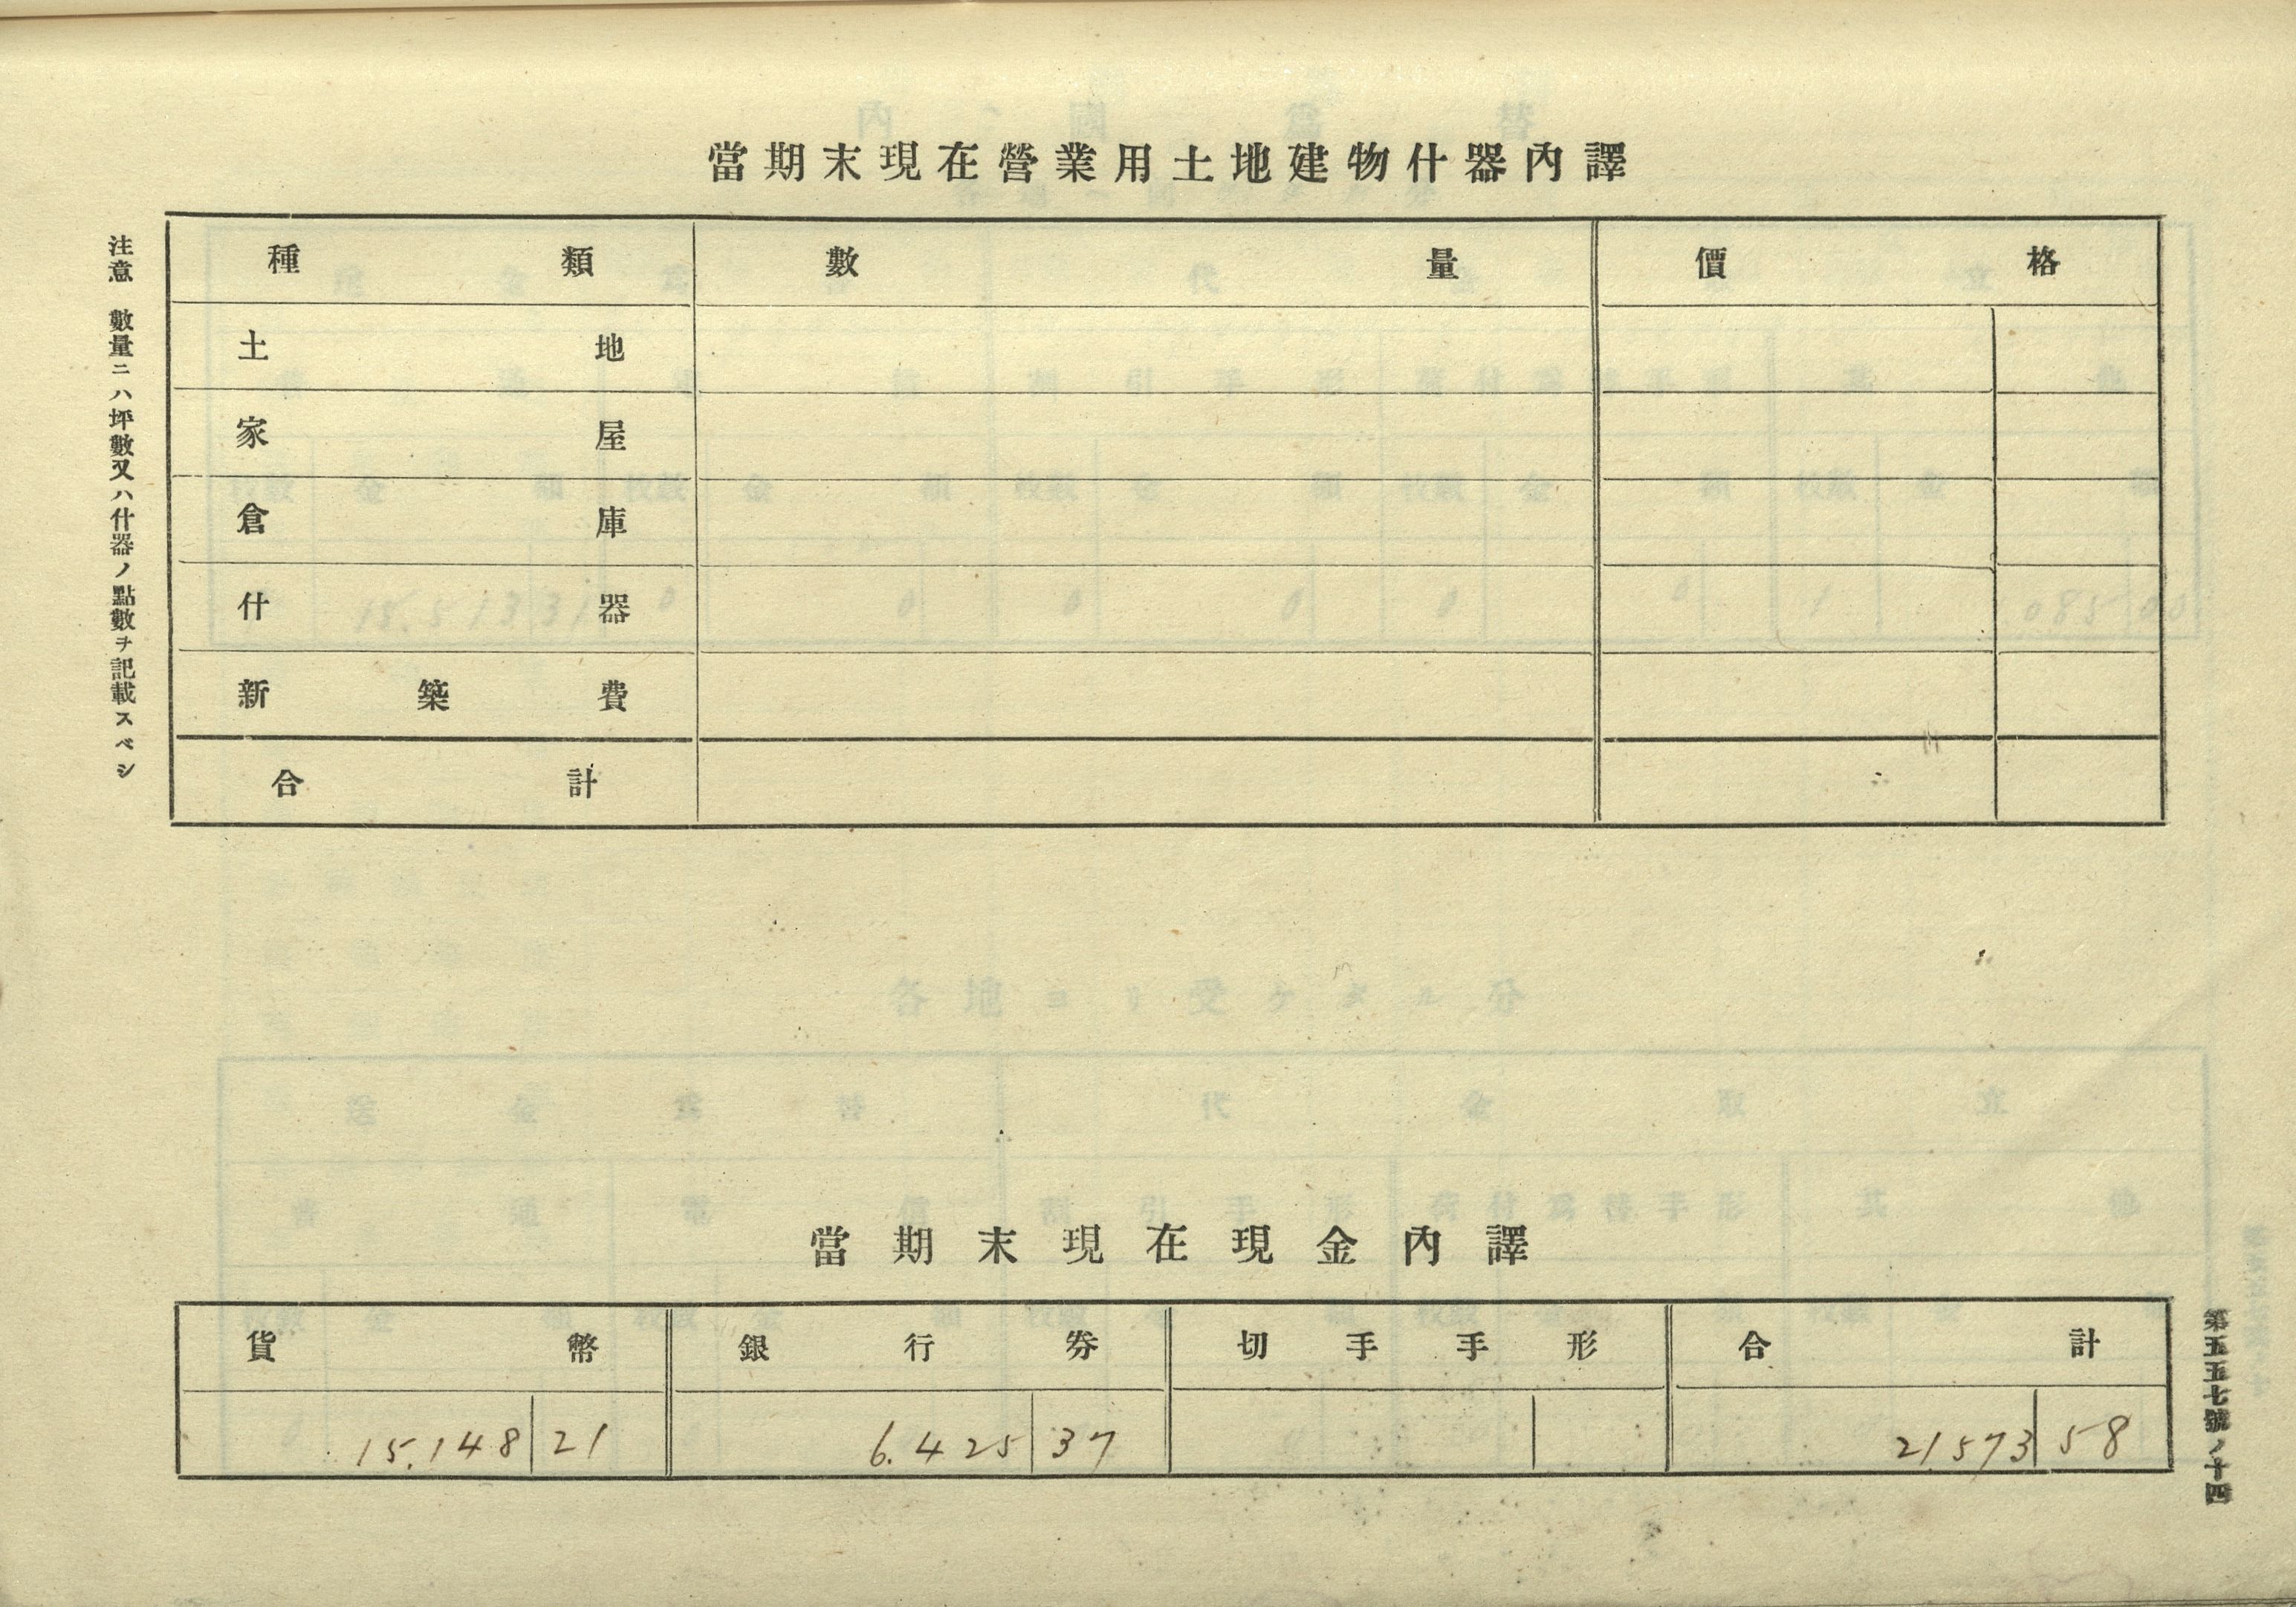 當期末現在營業用土地建物什器內譯
種類 數量 價格
土地
家屋
倉庫
什器
新築費
合計
注意 數量ニハ坪數又ハ什器ノ點數ヲ記載スベシ
當期末現在現金內譯
貨幣 銀行券 切手手形 合計
15.148 21 6.425 37 21573 58
第五五七號ノ十四